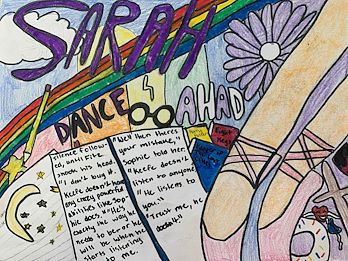 SARAH
DANCE
AHAD
silence follow-
ed, until Fitz
shook his head.
"I don't buy it,
Keefe doesn't have
any crazy powerful
abilities like Sop-
he does." "He's
exactly the way he
need to be or he
will be when he
starts listening
to me."
"Well then there's
your mistake,"
Sophie told her.
"Keefe doesn't
listen to anyone
"He listens to
you."
"Trust me, he
doesn't."
Keeper of